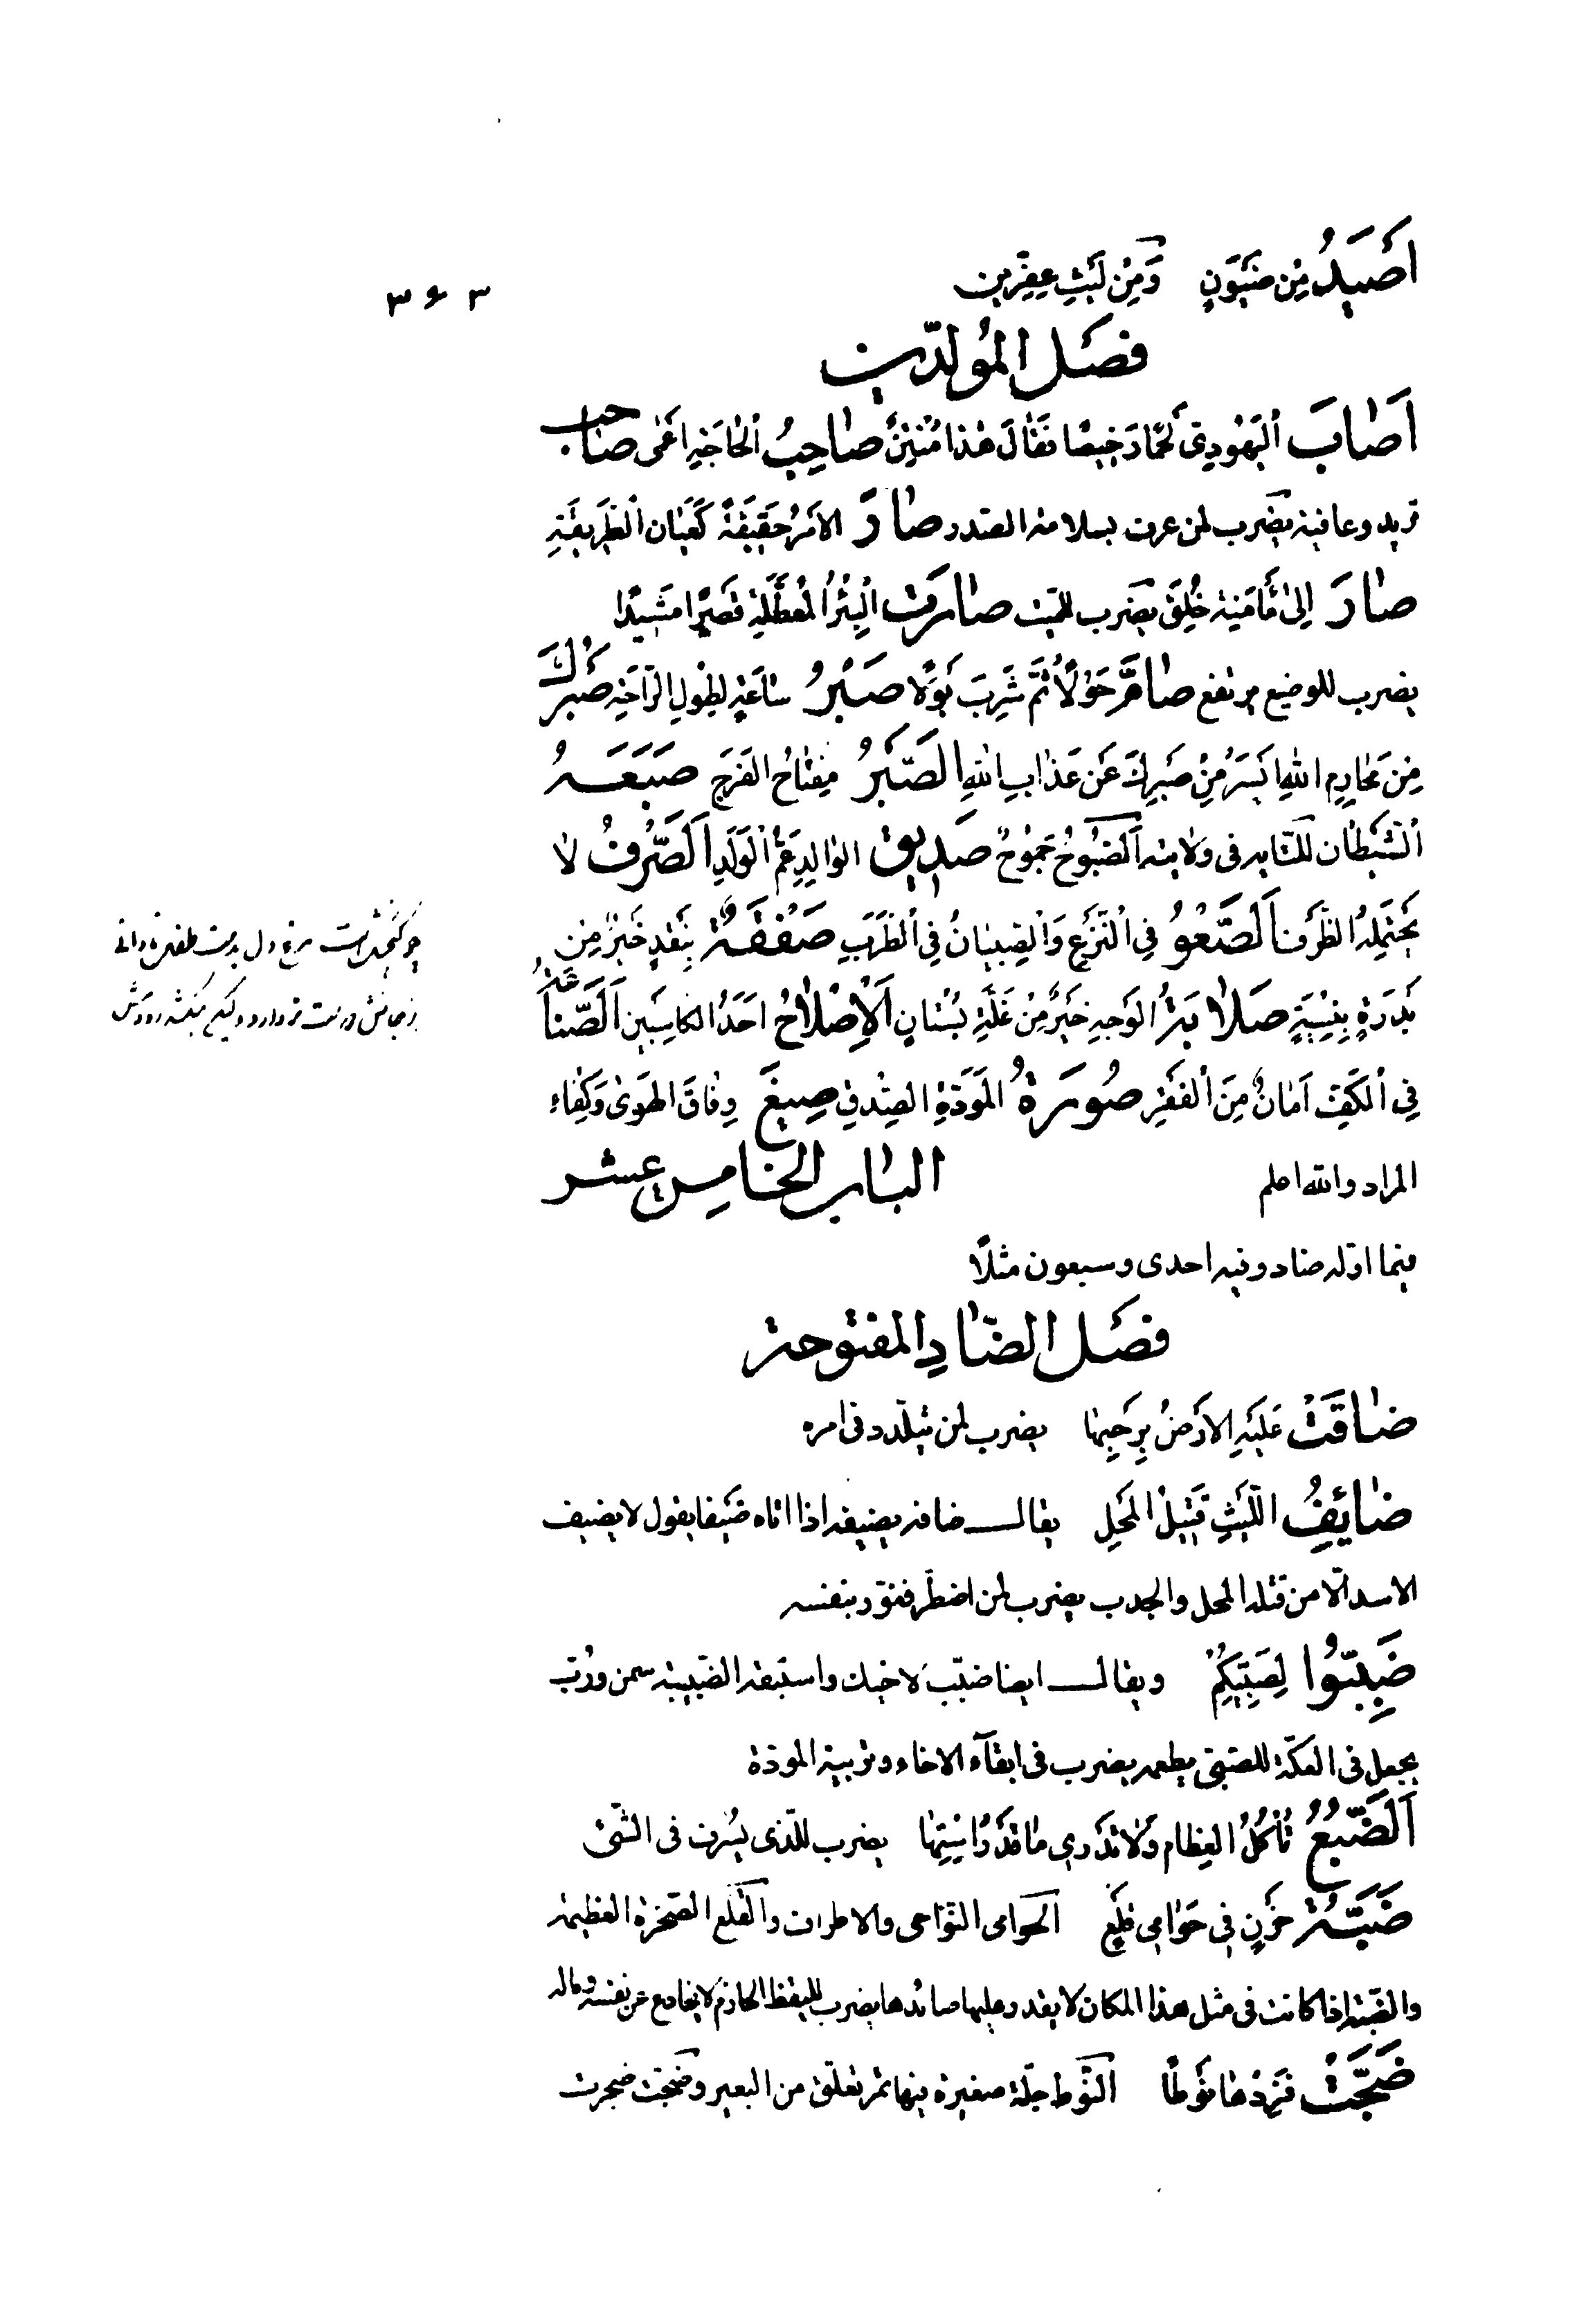 ۳۶۳
اَصْيَدُ مِنْ ضَيْوَنٍ وَمِنْ لَيْثِ عِفِرِّينَ
فصل المولّدين
اَصَابَ اليَهُودِيّ لَحْمًا رَخِيصًا فَقَالَ هٰذَا مُنْتِنٌ صَاحِبُ الحَاجَةِ اَعْمٰى صَاحِبُ
ثريد وعافية يضرب لمن عرف بسلامة الصدر صَارَ الاَمْرُ حَقِيقَةً كَعِيَانِ الطَّرِيقَةِ
صَارَ اِلىٰ مَا مِنْهُ خُلِقَ يضرب للميّت صَارَتِ البِئْرُ المُعَطَّلَةُ قَصْرًا مَشِيدًا
يضرب للوضيع يرتفع صَامَ حَوْلًا ثُمَّ شَرِبَ بَوْلًا صَبْرُ سَاعَةٍ لِطُولِ الرَّاحَةِ صَبْرُكَ
مِنْ مَحَارِمِ اللهِ اَيْسَرُ مِنْ صَبْرِكَ عَنْ عَذَابِ اللهِ الصَّبْرُ مِفْتَاحُ الفَرَجِ صَبَغَهُ
الشَّيْطَان للتايه فى ولايته اَلصَّبُوحُ جَمُوحٌ صَدِيق الوَالِدِ عَمُّ الْوَلَدِ اَلصَّرْفُ لَا
يَحْتَمِلُهُ الظَّرْف اَلصَّعْوُ فِي النَّزْعِ وَالصِّبْيَانُ فِي الطَّرَبِ صَفْقَةٌ بِنَقْدٍ خَيْرٌ مِن
بَدْرَةٍ بِنَسِيئَةٍ صَلَابَةُ الوَجْهِ خَيْرٌ مِنْ غَلَّةِ بُسْتَانٍ اَلْاِصْلَاحُ اَحَدُ الكَاسِبَيْنِ اَلصِّنَاعَةُ
فِي الْكَفِّ اَمَانٌ مِنَ الفَقْرِ صُورَةُ المَوَدَّةِ الصِّدْق صِيغَ وِفَاقَ الهَوٰى وَكِفَاءَ
المراد والله اعلم الباب الخامس عشر
فيما اوّله ضاد وفيه احدى وسبعون مثلًا
فصل الضّادِ المفتوحة
ضَاقَتْ عَلَيْهِ الاَرْضُ بِرَحْبِهَا يضرب لمن يتلدّد فى امره
ضَايِفُ اللَّيْثِ قَتِيلُ المَحْلِ يقال ضافه يضيفه اذا اتاه ضيفا يقول لا يضيف
الاسد الّا من قتله المحل والجدب يضرب لمن اضطرّ فغرّر بنفسه
ضَبِّبُوا لِصَبِيِّكُمْ ويقال ايضا ضبّبْ لاخيك واستبقه الضّبيبة سمن وربّ
يجعل فى العكّة للصبّى يطعمه يضرب فى ابقآء الاخاء وتربية المودّة
اَلضَّبُعُ تَأْكُلُ العِظَام وَلَا تَدْرِي مَا قَدْرُ اسْتِهَا يضرب للّذى يُسْرِف فى الشّئ
ضَبَّةُ حَزْنٍ فِي حَوَامِي قَلَعٍ الحوامى النّواحى والاطراف والقَلَع الصّخرة العظيمة
والضّبّة اذا كانت فى مثل هذا المكان لا يقدر عليها صائدها يضرب لليقظ الحازم لا يخادع عن نفسه وماله
ضَجَّتْ فَزِدْهَا نَوْطًا النَّوْط جلّة صغيرة فيها تمر تعلّق من البعير وضجّت ضجرت